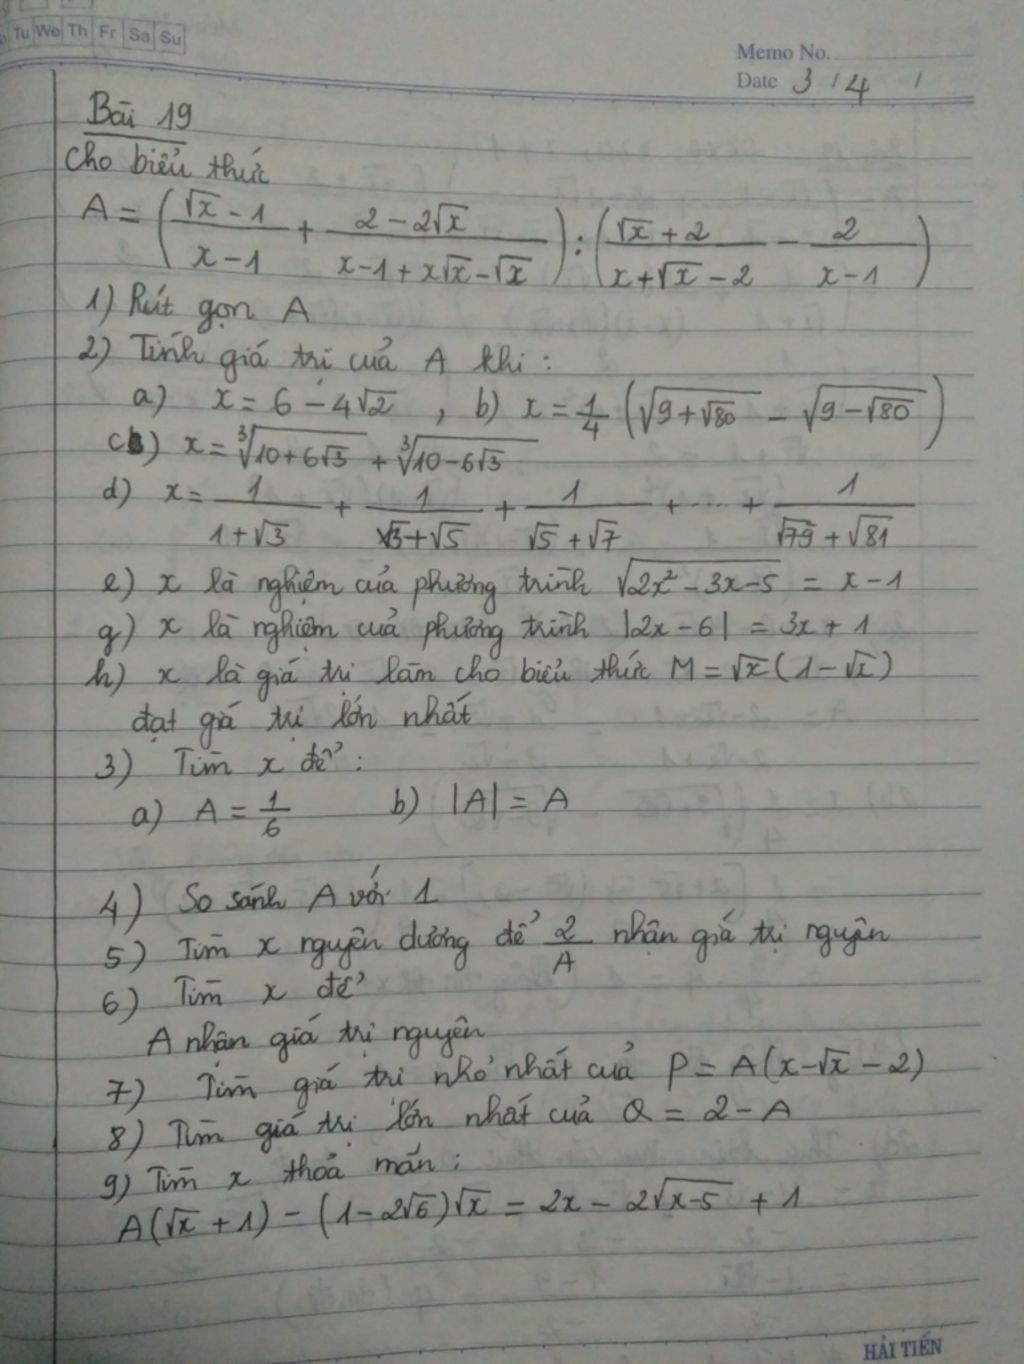 Tu We Th Fr Sa Su
Memo No.
Date 3 / 4 /
Bài 19
Cho biểu thức
A = ( (√x - 1)/(x - 1) + (2 - 2√x)/(x - 1 + x√x - √x) ) : ( (√x + 2)/(x + √x - 2) - 2/(x - 1) )
1) Rút gọn A
2) Tính giá trị của A khi :
a) x = 6 - 4√2 , b) x = 1/4 (√(9 + √80) - √(9 - √80))
c) x = ∛(10 + 6√3) + ∛(10 - 6√3)
d) x = 1/(1 + √3) + 1/(√3 + √5) + 1/(√5 + √7) + ... + 1/(√79 + √81)
e) x là nghiệm của phương trình √(2x² - 3x - 5) = x - 1
g) x là nghiệm của phương trình |2x - 6| = 3x + 1
h) x là giá trị làm cho biểu thức M = √x (1 - √x)
đạt giá trị lớn nhất
3) Tìm x để :
a) A = 1/6 b) |A| = A
4) So sánh A với 1
5) Tìm x nguyên dương để 2/A nhận giá trị nguyên
6) Tìm x để
A nhận giá trị nguyên
7) Tìm giá trị nhỏ nhất của P = A(x - √x - 2)
8) Tìm giá trị lớn nhất của Q = 2 - A
9) Tìm x thoả mãn :
A(√x + 1) - (1 - 2√6)√x = 2x - 2√(x - 5) + 1
HẢI TIẾN